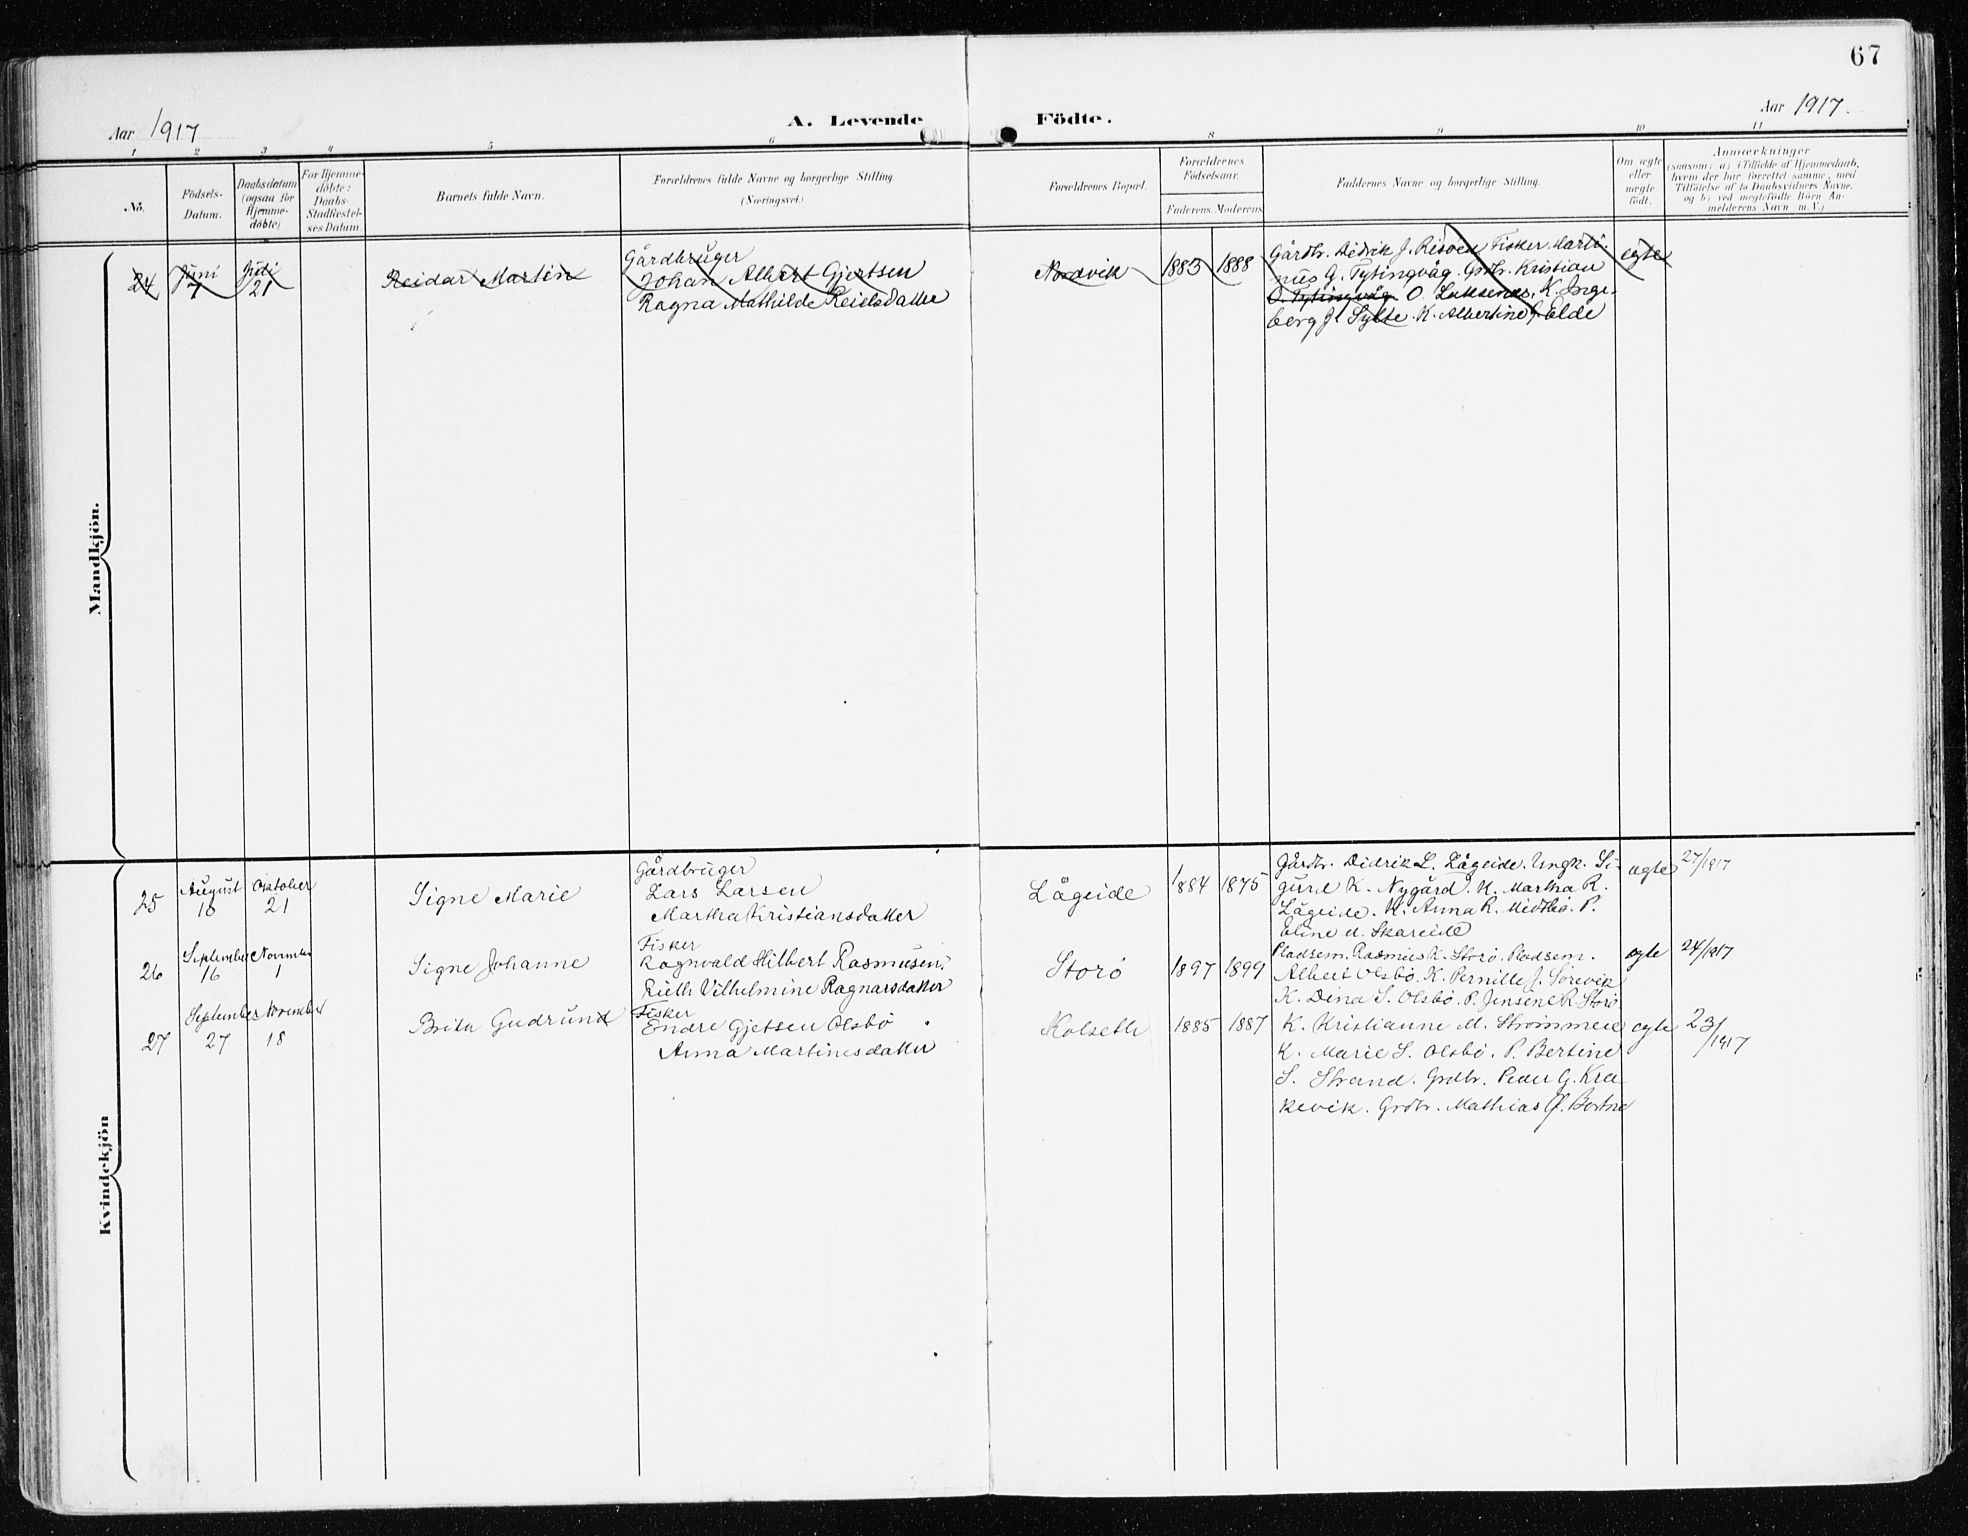 67
Aar 1917
A. Levende Födte.
Aar 1917.
1 2 3 4 5 6 8 9 10 11
No.
Födsels-
Datum.
Daabsdatum
(ogsaa for
Hjemme-
döbte)
For Hjemme-
döbte:
Daabs-
Stadfæstel-
ses Datum.
Barnets fulde Navn.
Forældrenes fulde Navne og borgerlige Stilling
(Næringsvei.)
Forældrenes Bopæl.
Forældrenes
Födselsaar.
Faderens. Moderens
Faddernes Navne og borgerlige Stilling.
Om ægte
eller
uægte
födt.
Anmærkninger
(saasom: a) i Tilfælde af Hjemmedaab,
hvem der har forrettet samme, med
Tilföielse af to Daabsvidners Navne,
og b) ved uægtefödte Börn An-
melderens Navn m.V.)
Mandkjön.
24
Juni
7
Juli
21
Reidar Martin
Gårdbruger
Johan Albert Gjertsen
Ragna Mathilde Reielsdatter
Nordvik
1883 1888
Gårdbr. Didrik J. Risöen Fisker Marti-
nus G. Tytingvåg. Grdbr. Kristian
O. Tytingvåg O. K. Inge-
berg J. Sylte. K. Albertine J. Elde
egte
Kvindekjön
25
August
16
Oktober
21
Signe Marie
Gårdbruger
Lars Larsen
Martha Kristiansdatter
Lågeide
1884 1875
Gårdbr. Didrik L. Lågeide. Ungk. Si-
gurd K. Nygård. K. Martha R.
Lågeide. K. Anna R. Midtbö. P.
Eline M. Skareide
egte
27/1917
26
September
16
November
1
Signe Johanne
Fisker
Ragnvald Hilbert Rasmusen
Ruth Vilhelmine Ragnarsdatter
Storö
1897 1899
Pladsem. Rasmus K. Storö. Pladsem.
Albert Olsbö. K. Pernille J. Sörevik
K. Dina S. Olsbö. P. Jensene R. Storö
egte
24/1917
27
September
27
November
18
Brita Gudrund
Fisker
Endre Gjetsen Olsbö
Anna Martinesdatter
Kolseth
1885 1887
K. Kristianne M. Strömmen
K. Marie S. Olsbö. P. Bertine
S. Strand. Grdbr. Peder G. Kra
kevik. Grdbr. Mathias J. Bortne
egte
23/1917